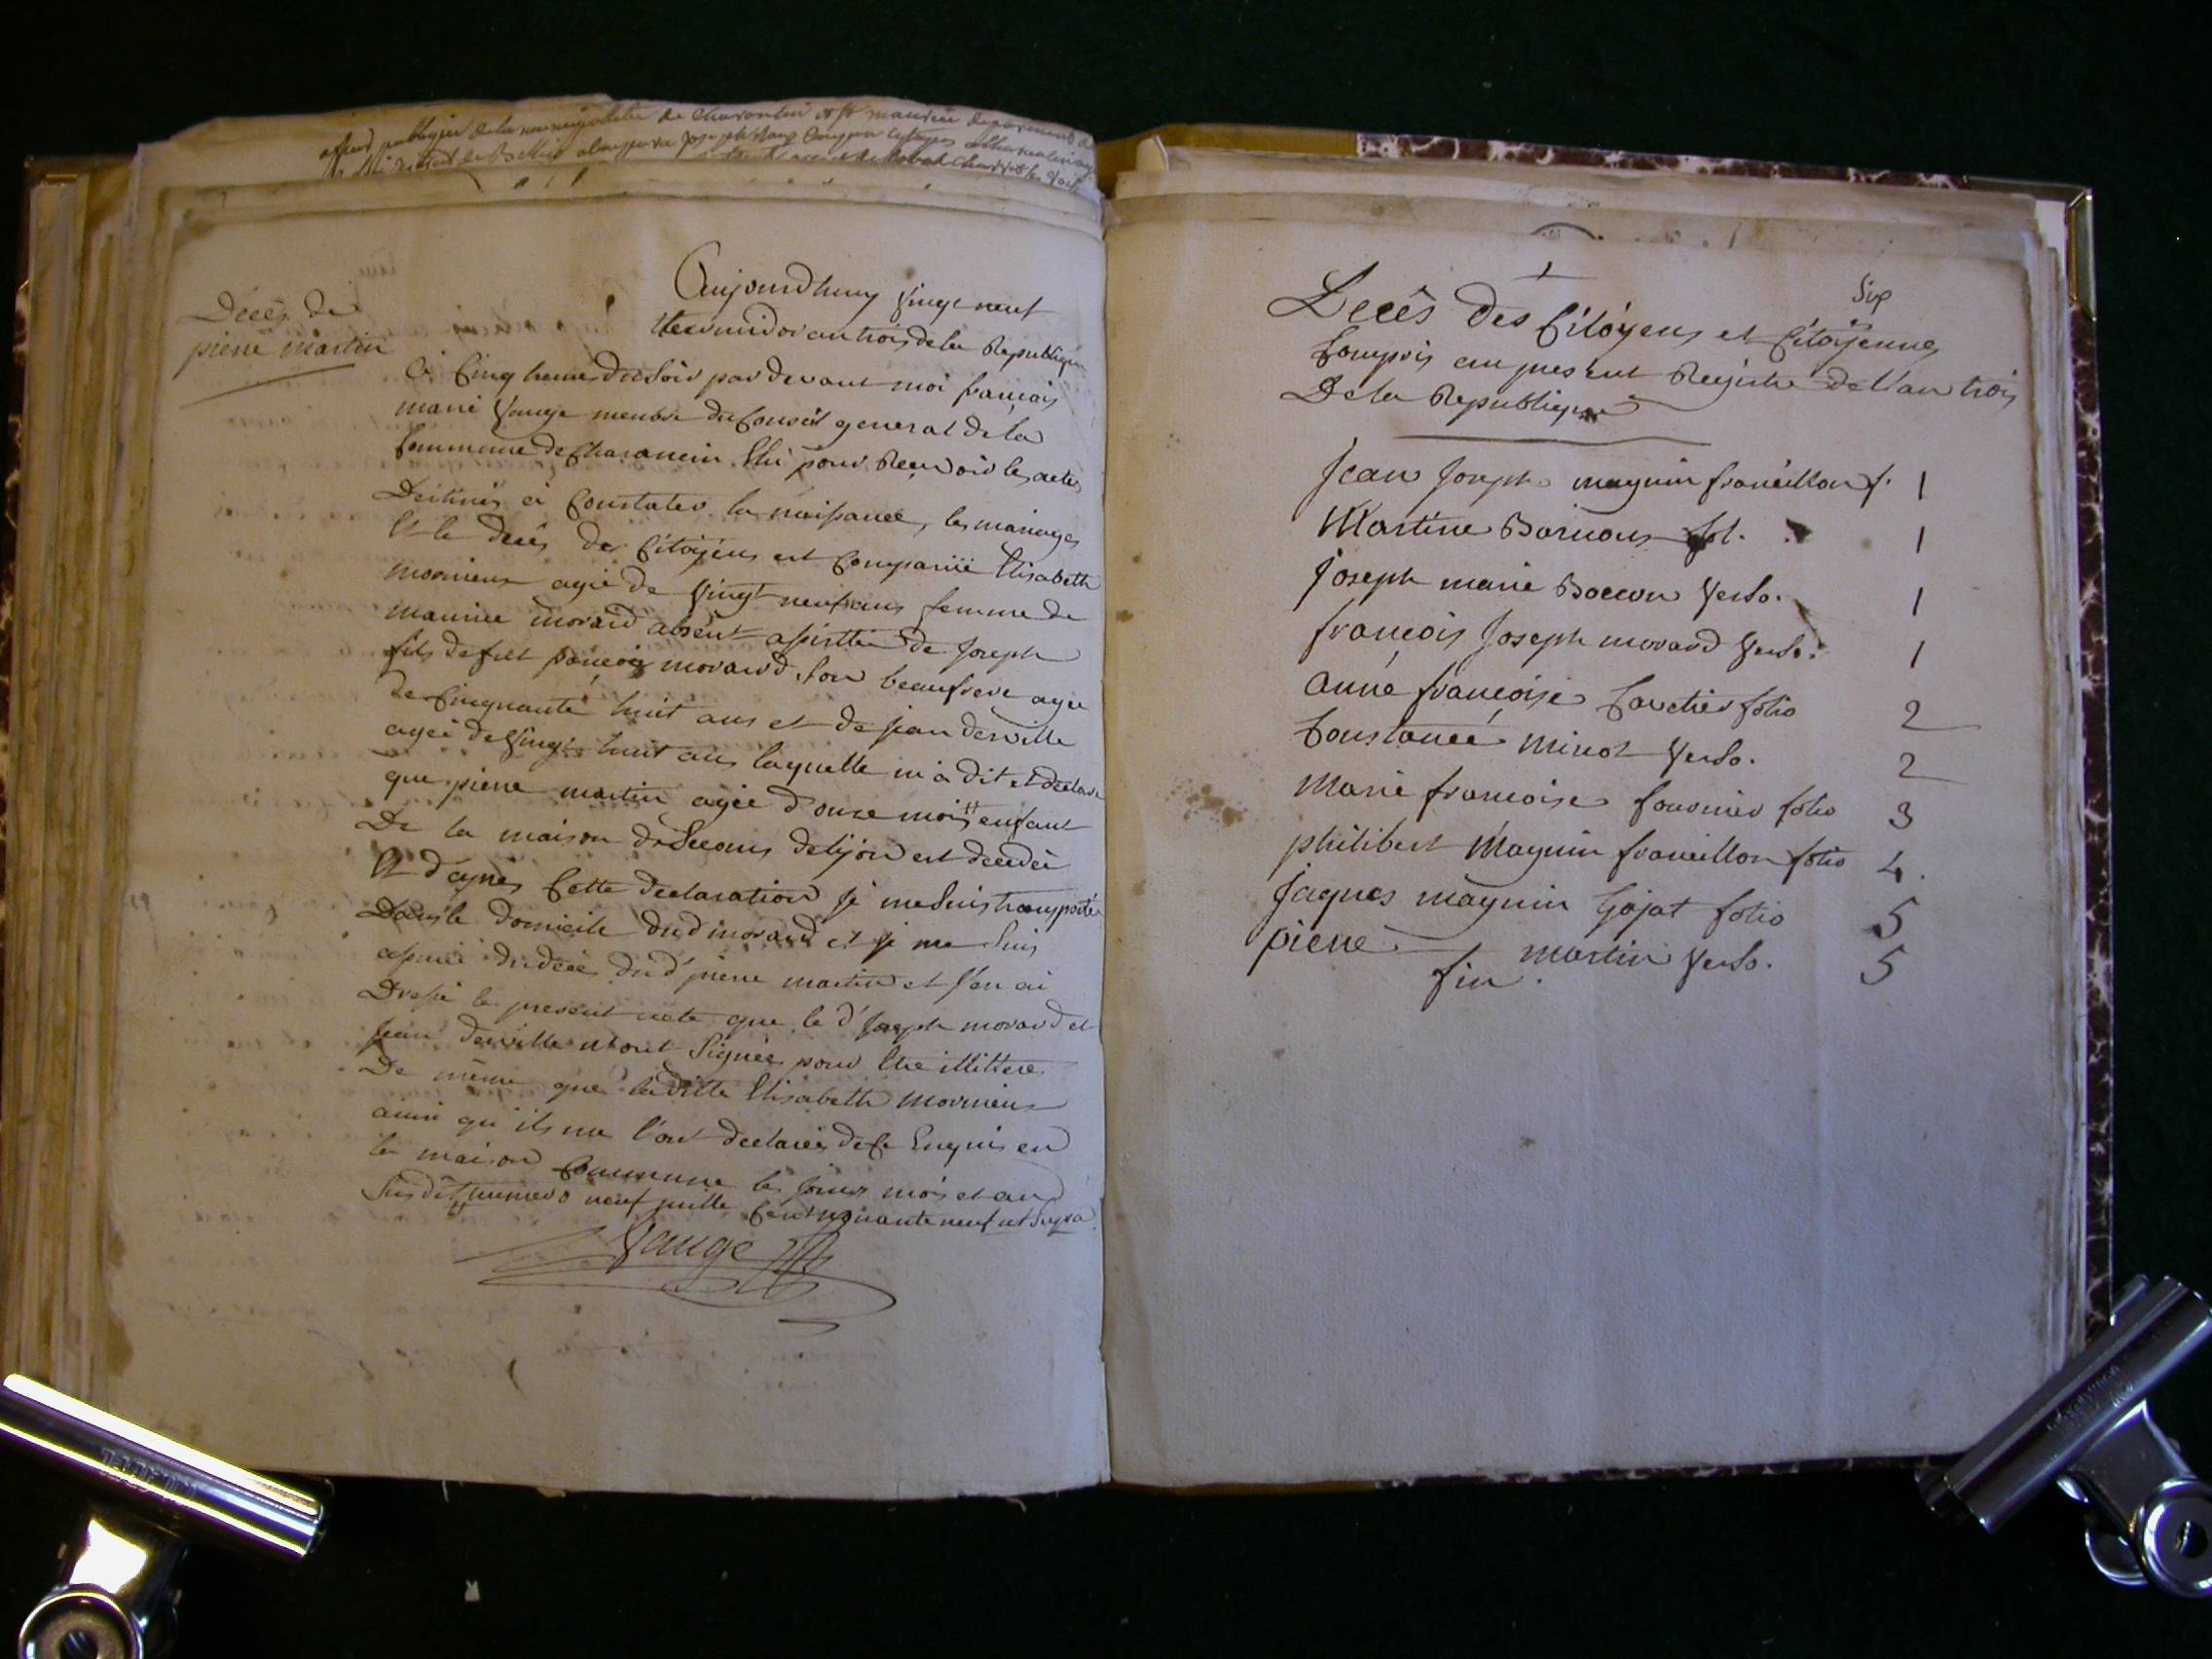 offici publique de la municipalité de Charantin et st maurice departement
district de Belley est comparu joseph
Décés de
pierre martin
Aujourdhuy vingt neuf
thermidor an trois de la Republique
à Cinq heures du soir par devant moi françois
marie Vauge menbre du Conseil general de la
Commune de Charancin Elu pour Recevoir les actes
Destinés à Constater la naissance, les mariages
Et le decés des Citoÿens est Comparuë Elisabeth
mornieux agée de vingt neuf ans femme de
maurice morard absent assistée de Joseph
fils de feu françois morard son beaufrere agée
de Cinquante huit ans et de jean derville
agée de vingt huit ans laquelle m'a dit et declaré
que pierre martin agée d'onze mois # enfant
De la maison de Secours de lÿon est decedée
Et d'aprés Cette declaration je me suis transportée
Dans le domicile dud morard et je me suis
assuré du decé du d' pierre martin et j'en ai
Dressé le present acte que le d' Joseph morard et
jean derville n'ont Signés pour Etre illitteré
De même que laditte Elisabeth mornieux
ainsi qu'ils me l'ont declarés de Ce Enquis en
la maison Commune les jours mois et an
Susdit # numero neuf mille Cent nonante neuf ut Supra
Vauge
1
Six
Decés des Citoÿens et Citoÿennes
Compris au present Registre de l'an trois
De la Republique
Jean Joseph maynin franeillon f. 1
Martine Bornous fol. 1
Joseph marie Boccon Verso. 1
françois Joseph morard Verso. 1
anne françoise Couctier folio 2
Constance minot Verso. 2
Marie françoise fournier folio 3
philibert Maynin franeillon folio 4.
Jaques maynin Gojat folio 5
pierre martin Verso. 5
fin.